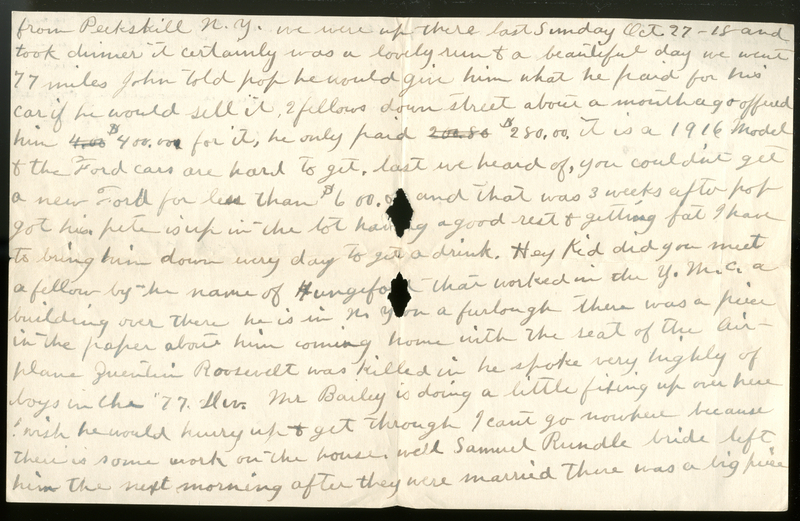 from Peekskill N.Y. we were up there last Sunday Oct 27-18 and
took dinner it certainly was a lovely run & a beautiful day we went
77 miles John told pop he would give him what he paid for his
car if he would sell it, 2 fellows down street about a month ago offered
him $400.00 for it, he only paid $280.00. it is a 1916 Model
& the Ford cars are hard to get, last we heard of, you couldnt get
a new Ford for less than $600.0 and that was 3 weeks after pop
got his. pete is up in the lot having a good rest & getting fat I have
to bring him down every day to get a drink. Hey Kid did you meet
a fellow by the name of Hungeford that worked in the Y.M.C.a
building over there he is in N.Y on a furlough there was a piece
in the paper about him coming home with the seat of the Air-
plane Quentin Roosevelt was killed in he spoke very highly of
boys in the "77. Div. Mr Bailey is doing a little fixing up over here
I wish he would hurry up & get through I cant go nowhere because
their is some work on the house. well Samuel Rundle bride left
him the next morning after they were married there was a big piece